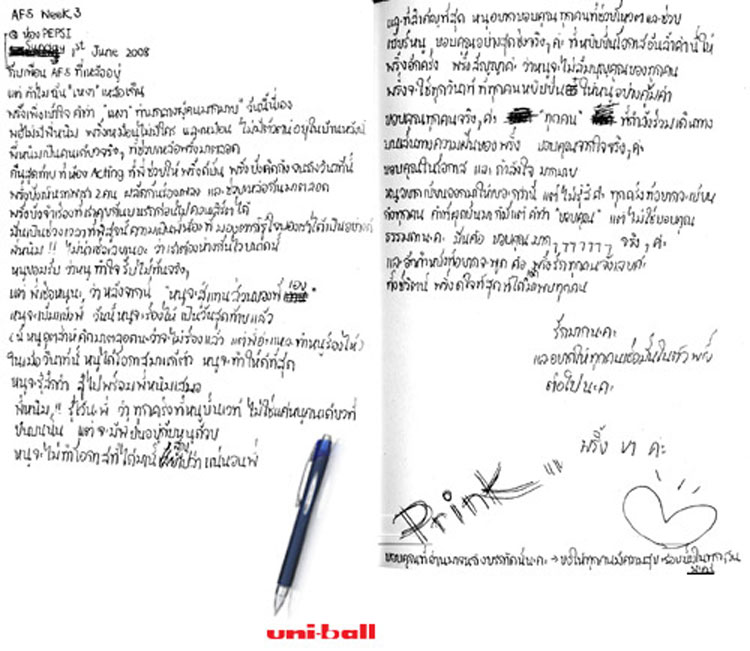 AFS Week 3
@ ห้อง PEPSI
1st June 2008
ถึงเพื่อน AFS ที่เหลืออยู่
แต่ ทำไมมัน "เหงา" เหลือเกิน
พริ้งเพิ่งเข้าใจ คำว่า "เหงา" ท่ามกลางผู้คนมากมาย วันนี้นี่เอง
พอไม่มีพี่หนิม พริ้งเหมือนไม่มีใคร และเหมือน ไม่มีตัวตน อยู่ในบ้านหลังนี้
พี่หนิมเป็นคนเดียวจริงๆ ที่ช่วยเหลือพริ้งมาตลอด
คืนสุดท้าย ที่ห้อง Acting ที่พี่ช่วยให้ พริ้ง
พริ้งยังนึกภาพเรา 2 คน ผลัดกันร้องเพลง และ ช่วยเหลือกันมาตลอด
พี่หนิม !! ไม่น่าเชื่อเลยนะ ว่าเราต้องห่างกันไวขนาดนี้
หนูยอมรับ ว่าหนู ทำใจ รับไม่ทันจริงๆ
แต่ พี่เชื่อหนูนะ ว่า หลังจากนี้ "หนูจะสู้แทนส่วนของพี่ เอง"
หนูจะเข้มแข็งพี่ วันนี้ หนูจะร้องไห้ เป็นวันสุดท้ายแล้ว
(นี่ หนูอุตส่าห์คิดมาตลอดนะว่าจะไม่ร้องแล้ว แต่พี่อ่ะแหละทำหนูร้องไห้)
ในเมื่อวินาทีนี้ หนูได้โอกาสมาแล้ว หนูจะทำให้ดีที่สุด
หนูจะรู้สึกว่า สู้ไปพร้อมพี่หนิมเสมอ
พี่หนิม !! รู้ไว้นะพี่ ว่า ทุกครั้งที่หนูขึ้นเวที ไม่ใช่แค่หนูคนเดียวที่
ยืนบนนั้น แต่ จะมีพี่ยืนอยู่กับหนูด้วย
หนูจะไม่ทำโอกาสที่ได้มานี้ สูญเปล่า แน่นอนพี่
uni-ball
และที่สำคัญที่สุด หนูอยากขอบคุณทุกคนที่ช่วยโหวตและช่วย
เชียร์หนู ขอบคุณอย่างสุดซึ้งจริงๆ ค่ะ ที่หยิบยื่นโอกาสอันล้ำค่านี้ให้
พริ้งอีกครั้ง พริ้งสัญญาค่ะ ว่าหนูจะไม่ลืมบุญคุณของทุกคน
พริ้งจะใช้ทุกวินาที ที่ทุกคนหยิบยื่น ให้หนูอย่างคุ้มค่า
ขอบคุณทุกคนจริงๆ ค่ะ "ทุกคน" ที่กำลังร่วมเดินทาง
บนเส้นทางความฝันของพริ้ง ขอบคุณจากใจจริงๆ ค่ะ
ขอบคุณในโอกาส และ กำลังใจ มากมาย
หนูอยากเขียนออกมาให้เยอะกว่านี้ แต่ ไม่รู้สิค่ะ ทุกครั้งที่อยากจะเขียน
ถึงทุกคน คำที่ผุดขึ้นมา ก็มีแต่ คำว่า "ขอบคุณ" แต่ ไม่ใช่ขอบคุณ
ธรรมดานะค่ะ มันคือ ขอบคุณมาก ๆๆๆๆๆๆ จริงๆ ค่ะ
และ อีกคำหนึ่งที่อยากจะพูด คือ พริ้งรักทุกคนจังเลยค่ะ
ทั้งชีวิตนี้ พริ้งดีใจที่สุด ที่ได้มาพบทุกคน
รักมากนะคะ
และอยากให้ทุกคนเชื่อมั่นในตัว พริ้ง
ต่อไปนะคะ
พริ้ง ขา ค่ะ
Prink
ขอบคุณที่อ่านมาจนถึงบรรทัดนี้นะคะ → ขอให้ทุกคนมีความสุข